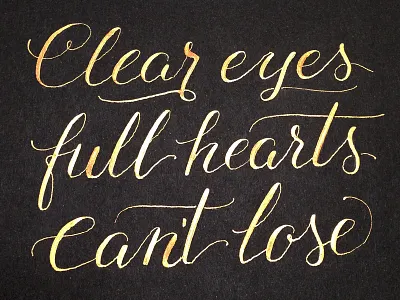 Clear eyes
full hearts
can't lose